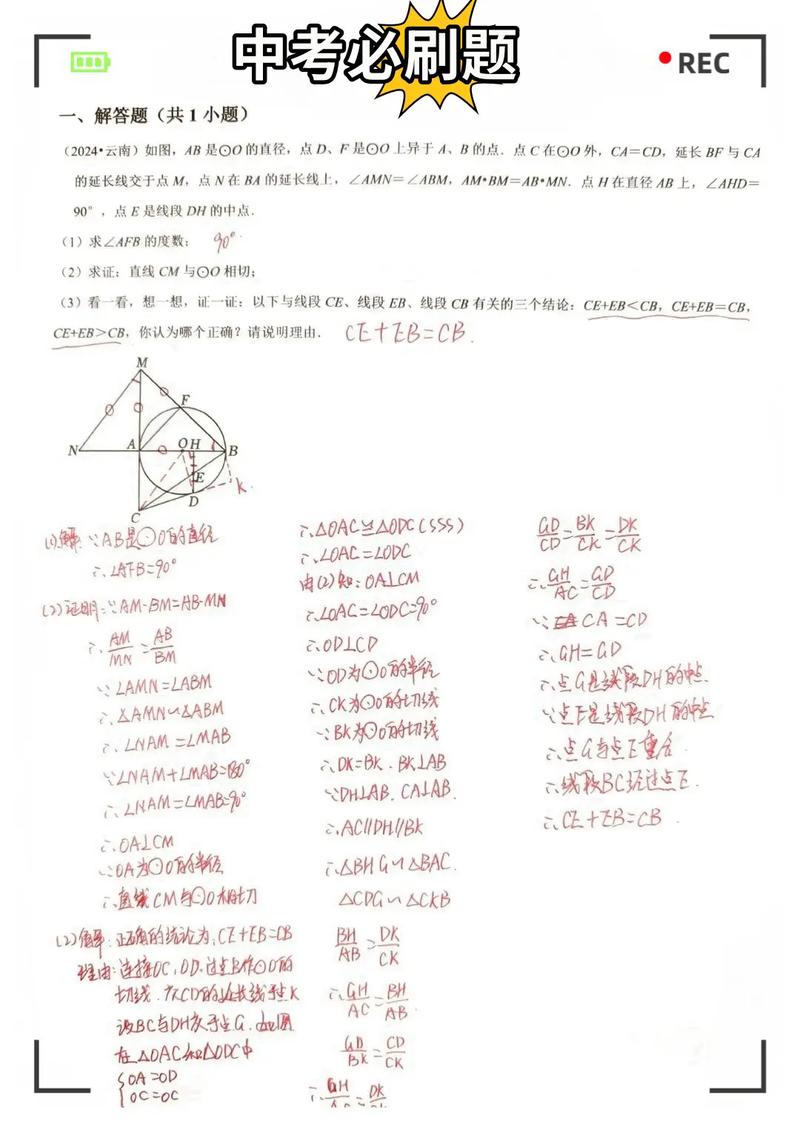 中考必刷题
REC
一、解答题（共1小题）
（2024•云南）如图，AB是⊙O的直径，点D、F是⊙O上异于A、B的点．点C在⊙O外，CA＝CD，延长BF与CA
的延长线交于点M，点N在BA的延长线上，∠AMN＝∠ABM，AM•BM＝AB•MN．点H在直径AB上，∠AHD＝
90°，点E是线段DH的中点．
（1）求∠AFB的度数； 90°
（2）求证：直线CM与⊙O相切；
（3）看一看，想一想，证一证：以下与线段CE、线段EB、线段CB有关的三个结论：CE+EB＜CB，CE+EB＝CB，
CE+EB＞CB，你认为哪个正确？请说明理由． CE+EB=CB.
M
F
N A O H B
E
K
D
C
(1)解: ∵AB是⊙O的直径
∴∠AFB=90°
(2)证明: ∵AM·BM=AB·MN
∴AM/MN=AB/BM
∵∠AMN=∠ABM
∴△AMN∽△ABM
∴∠NAM=∠MAB
∵∠NAM+∠MAB=180°
∴∠NAM=∠MAB=90°
∴OA⊥CM
∵OA为⊙O的半径
∴直线CM与⊙O相切
(2)解: 正确的结论为: CE+EB=CB
理由: 连接OC, OD, 过点B作⊙O的
切线, 交CD的延长线于点K
设BC与DH交于点G, 如图
在△OAC和△ODC中
OA=OD
OC=OC
∴△OAC≌△ODC(SSS)
∴∠OAC=∠ODC
由(2)知: OA⊥CM
∴∠OAC=∠ODC=90°
∴OD⊥CD
∵OD为⊙O的半径
∴CK为⊙O的切线
∵BK为⊙O的切线
∴DK=BK. BK⊥AB
∵DH⊥AB. CA⊥AB.
∴AC∥DH∥BK
∴△BHG∽△BAC.
△CDG∽△CKB
BH/AB=DK/CK
∴GH/AC=BH/AB.
GD/BK=CD/CK
∴GH/AC=DK
GD/CD=BK/CK=DK/CK
∴GH/AC=GD/CD
∵CA=CD
∴GH=GD
∴点G是线段DH的中点.
∵点E是线段DH的中点
∴点G与点E重合.
∴线段BC经过点E.
∴CE+EB=CB.